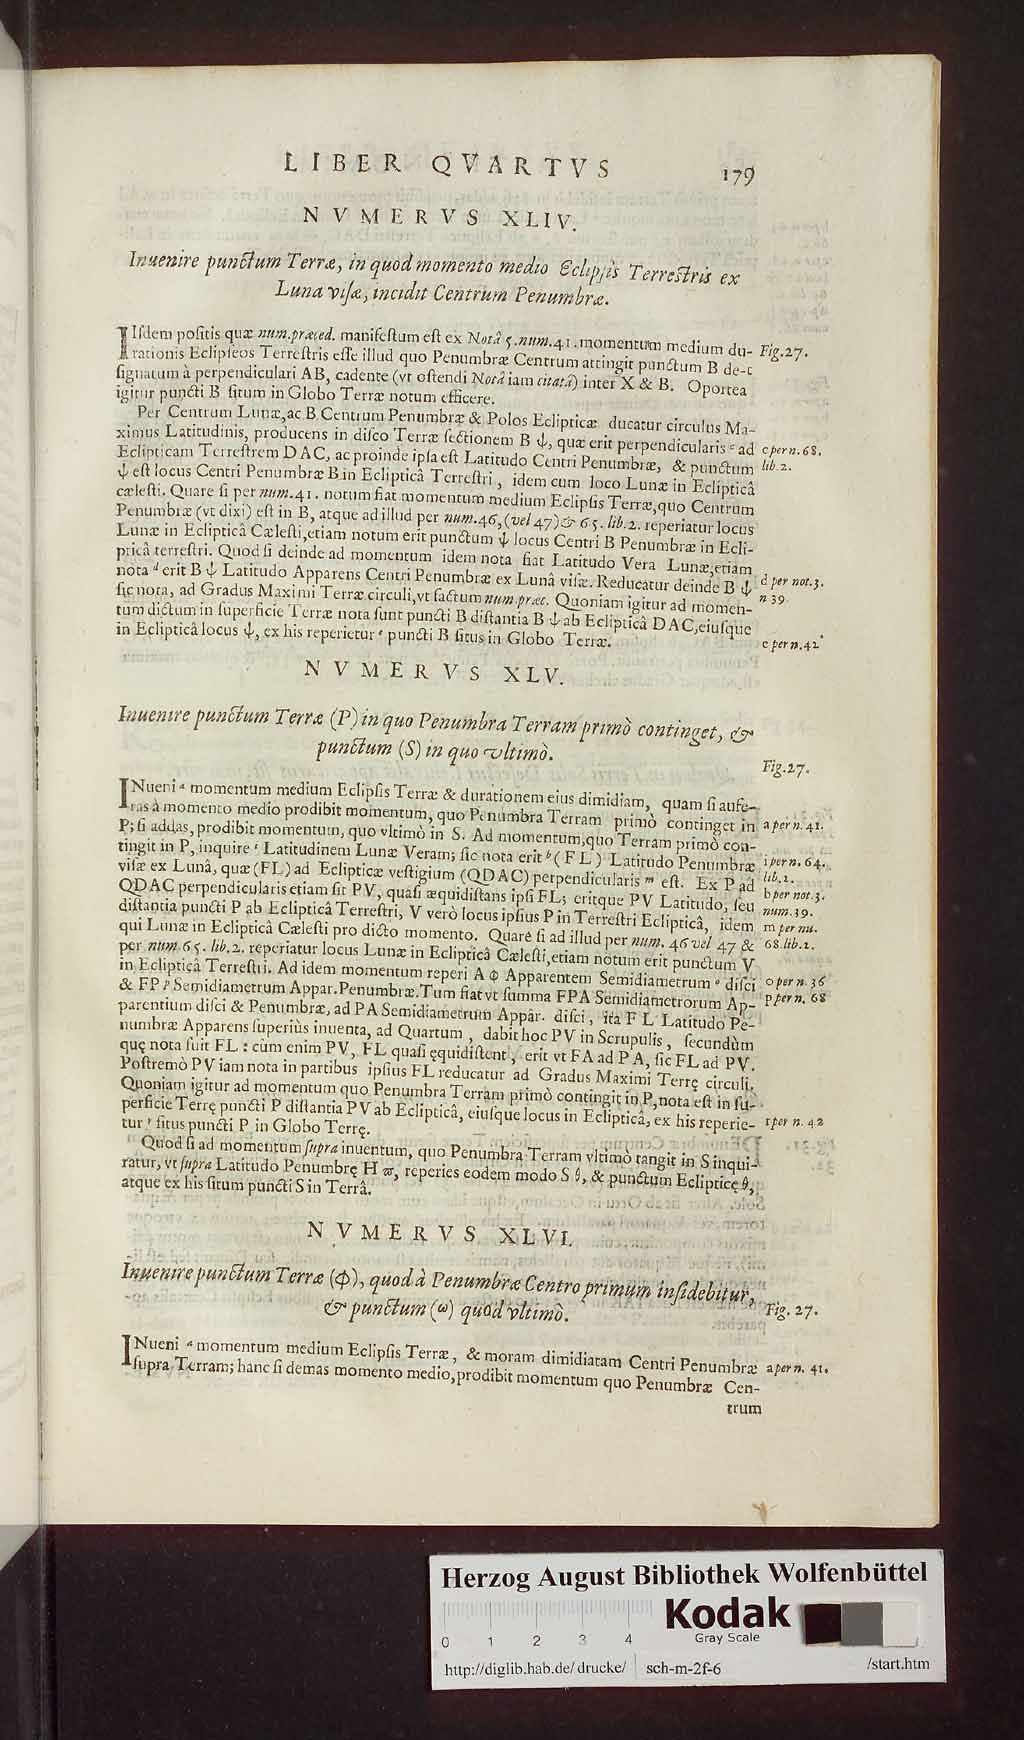 LIBER QVARTVS 179
NVMERVS XLIV.
Inuenire punctum Terræ, in quod momento medio Eclipsis Terrestris ex
Luna visæ, incidit Centrum Penumbræ.
IIſdem poſitis quæ num.præced. manifeſtum eſt ex Notâ 5.num.41.momentum medium du- Fig.27.
rationis Eclipſeos Terreſtris eſſe illud quo Penumbræ Centrum attingit punctum B de-
ſignatum à perpendiculari AB, cadente (vt oſtendi Notâ iam citatâ) inter X & B. Oportea
igitur puncti B ſitum in Globo Terræ notum efficere.
Per Centrum Lunæ, ac B Centrum Penumbræ & Polos Eclipticæ ducatur circulus Ma-
ximus Latitudinis, producens in diſco Terræ ſectionem B ψ, quæ erit perpendicularis c ad c per n. 68.
Eclipticam Terreſtrem DAC, ac proinde ipſa eſt Latitudo Centri Penumbræ, & punctum lib. 2.
ψ eſt locus Centri Penumbræ B in Eclipticâ Terreſtri, idem cum loco Lunæ in Eclipticâ
cæleſti. Quare ſi per num.41. notum fiat momentum medium Eclipſis Terræ, quo Centrum
Penumbræ (vt dixi) eſt in B, atque ad illud per num.46,(vel 47) & 65. lib.2. reperiatur locus
Lunæ in Eclipticâ Cæleſti, etiam notum erit punctum ψ locus Centri B Penumbræ in Ecli-
pticâ terreſtri. Quod ſi deinde ad momentum idem nota fiat Latitudo Vera Lunæ, etiam
nota d erit B ψ Latitudo Apparens Centri Penumbræ ex Lunâ viſæ. Reducatur deinde B ψ d per not.3.
ſic nota, ad Gradus Maximi Terræ circuli, vt factum num.præc. Quoniam igitur ad momen- n 39.
tum dictum in ſuperficie Terræ nota ſunt puncti B diſtantia B ψ ab Eclipticâ DAC, eiuſque
in Eclipticâ locus ψ, ex his reperietur e puncti B ſitus in Globo Terræ. e per n.42
NVMERVS XLV.
Inuenire punctum Terræ (P) in quo Penumbra Terram primò continget, &
punctum (S) in quo vltimò.
Fig.27.
INueni a momentum medium Eclipſis Terræ & durationem eius dimidiam, quam ſi aufe-
ras à momento medio prodibit momentum, quo Penumbra Terram primò continget in a per n. 41.
P; ſi addas, prodibit momentum, quo vltimò in S. Ad momentum, quo Terram primò con-
tingit in P, inquire i Latitudinem Lunæ Veram; ſic nota erit b (FL) Latitudo Penumbræ i per n. 64.
viſæ ex Lunâ, quæ (FL) ad Eclipticæ veſtigium (QDAC) perpendicularis m eſt. Ex P ad lib.2.
QDAC perpendicularis etiam ſit PV, quaſi æquidiſtans ipſi FL; eritque PV Latitudo, ſeu b per not.3.
diſtantia puncti P ab Eclipticâ Terreſtri, V verò locus ipſius P in Terreſtri Eclipticâ, idem num.39.
qui Lunæ in Eclipticâ Cæleſti pro dicto momento. Quare ſi ad illud per num. 46 vel 47 & m per nu.
per num.65. lib.2. reperiatur locus Lunæ in Eclipticâ Cæleſti, etiam notum erit punctum V 68.lib.2.
in Eclipticâ Terreſtri. Ad idem momentum reperi A Φ Apparentem Semidiametrum o diſci o per n. 36
& FP p Semidiametrum Appar.Penumbræ. Tum fiat vt ſumma FPA Semidiametrorum Ap- p per n. 68
parentium diſci & Penumbræ, ad PA Semidiametrum Appar. diſci, ita FL Latitudo Pe-
numbræ Apparens ſuperius inuenta, ad Quartum, dabit hoc PV in Scrupulis, ſecundùm
quę nota fuit FL: cùm enim PV, FL quaſi ęquidiſtent, erit vt FA ad PA, ſic FL ad PV.
Poſtremò PV iam nota in partibus ipſius FL reducatur ad Gradus Maximi Terrę circuli.
Quoniam igitur ad momentum quo Penumbra Terram primò contingit in P, nota eſt in ſu-
perficie Terrę puncti P diſtantia PV ab Eclipticâ, eiuſque locus in Eclipticâ, ex his reperie- r per n. 42
tur r ſitus puncti P in Globo Terrę.
Quod ſi ad momentum ſupra inuentum, quo Penumbra Terram vltimò tangit in S inqui-
ratur, vt ſupra Latitudo Penumbrę H ϖ, reperies eodem modo S θ, & punctum Eclipticę θ,
atque ex his ſitum puncti S in Terrâ.
NVMERVS XLVI.
Inuenire punctum Terræ (Φ), quod à Penumbræ Centro primùm inſidebitur,
& punctum (ω) quod vltimò. Fig. 27.
INueni a momentum medium Eclipſis Terræ, & moram dimidiatam Centri Penumbræ a per n. 41.
ſupra Terram; hanc ſi demas momento medio, prodibit momentum quo Penumbræ Cen-
trum
Herzog August Bibliothek Wolfenbüttel
Kodak
Gray Scale
0 1 2 3 4
http://diglib.hab.de/drucke/ sch-m-2f-6 /start.htm